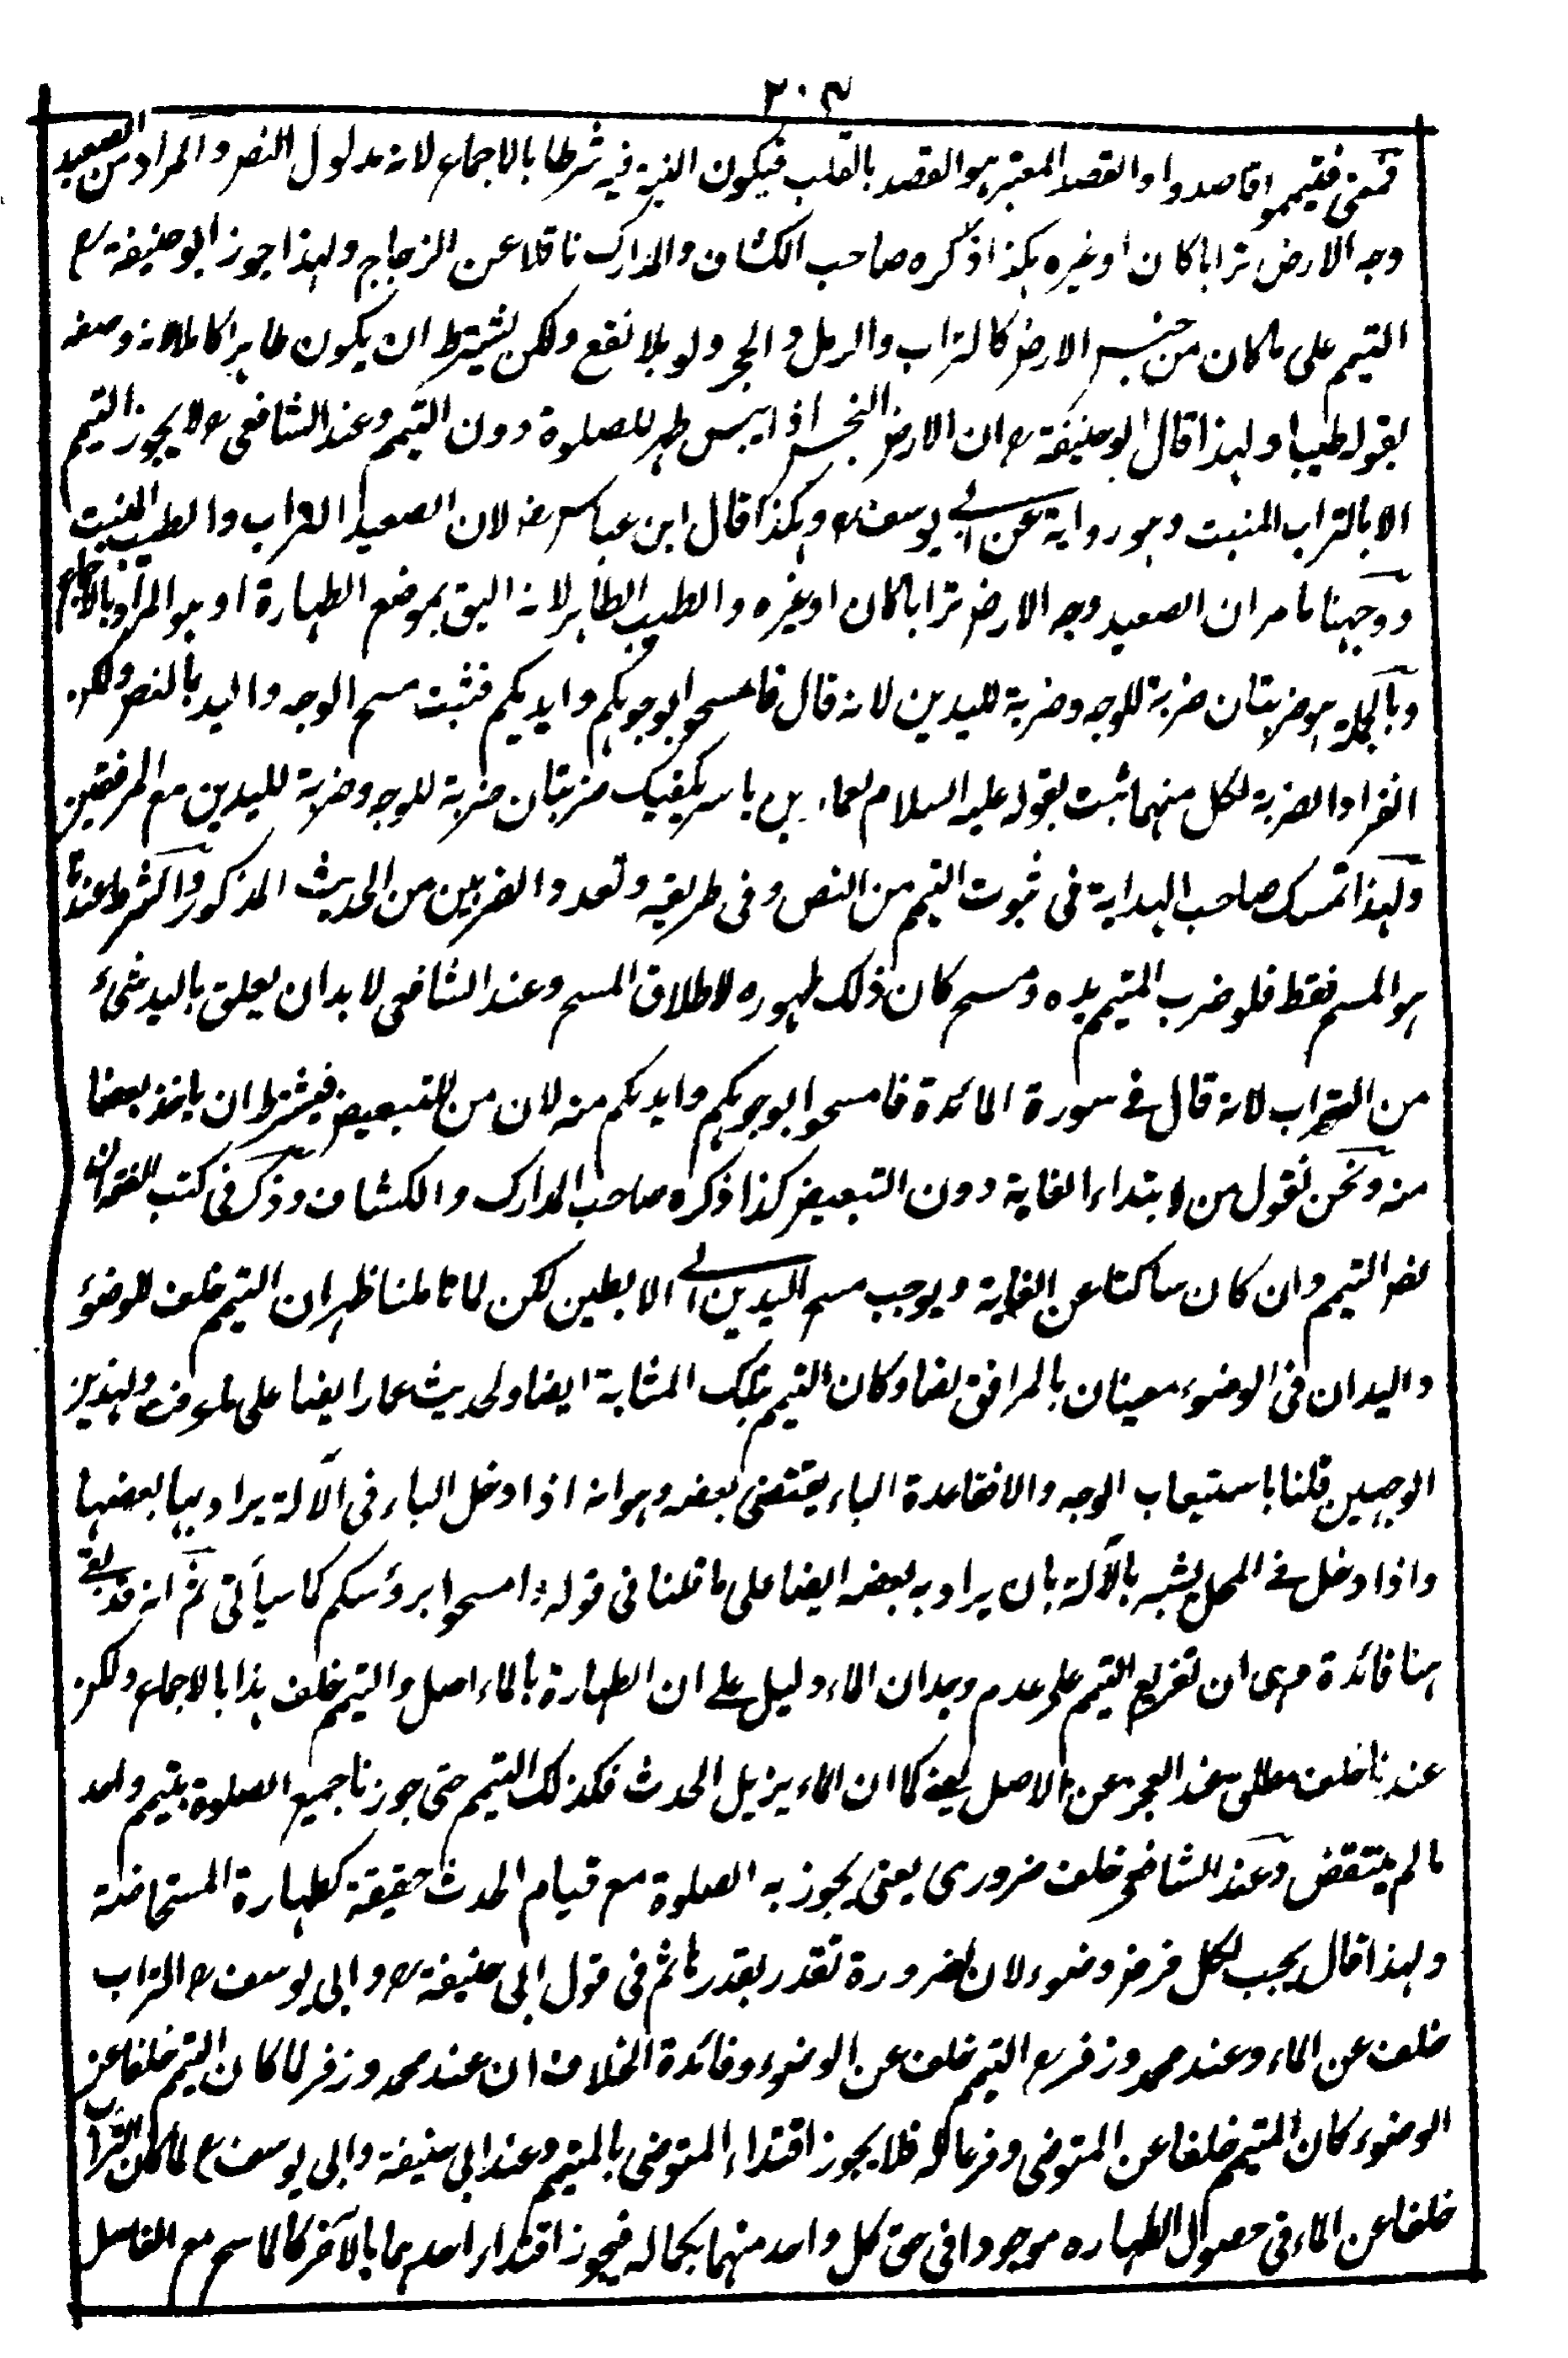 ٢٠٣
فمعنى فتيمموا قاصدوا والقصد المعتبر هو القصد بالقلب فيكون النية فيه شرطا بالاجماع لانه مدلول النص والمراد من الصعيد
وجه الارض ترابا كان او غيره هكذا ذكره صاحب الكشاف والمدارك ناقلا عن الزجاج ولهذا جوز ابو حنيفة رح
التيمم على ما كان من جنس الارض كالتراب والرمل والحجر ولو بلا نقع ولكن يشترط ان يكون طاهرا كاملا لانه وصفه
بقوله طيبا ولهذا قال ابو حنيفة رح ان الارض النجس اذا يبس طهر للصلوة دون التيمم وعند الشافعي رح لا يجوز التيمم
الا بالتراب المنبت وهو رواية عن ابي يوسف رح وهكذا قال ابن عباس رض لان الصعيد التراب والطيب المنبت
ووجهنا ما مر ان الصعيد وجه الارض ترابا كان او غيره والطيب الطاهر لانه اليق بموضع الطهارة او هو المراد بالاجماع
وبالجملة هو ضربتان ضربة للوجه وضربة لليدين لانه قال فامسحوا بوجوهكم وايديكم فثبت مسح الوجه واليد بالنص ولكن
انفراد الضربة لكل منهما ثبت بقوله عليه السلام لعمار بن ياسر يكفيك ضربتان ضربة للوجه وضربة لليدين مع المرفقين
ولهذا تمسك صاحب الهداية في ثبوت التيمم من النص وفي طريقه وتعدد الضربين من الحديث المذكور والشرط عندنا
هو المسح فقط فلو ضرب المتيمم يده ومسح كان ذلك طهوره لاطلاق المسح وعند الشافعي لا بد ان يعلق باليد شئ
من التراب لانه قال في سورة المائدة فامسحوا بوجوهكم وايديكم منه لان من للتبعيض فيشترط ان ياخذ بعضا
منه ونحن نقول من لابتداء الغاية دون التبعيض كذا ذكره صاحب المدارك والكشاف وذكر في كتب الفقه ان
نص التيمم وان كان ساكتا عن الغاية ويوجب مسح اليدين الى الابطين لكن لما تاملنا ظهر ان التيمم خلف للوضوء
واليدان في الوضوء معينان بالمرافق نصا وكان التيمم بتلك المثابة ايضا ولحديث عمار ايضا على ما عرفت ولهذين
الوجهين قلنا باستيعاب الوجه والا فقاعدة الباء يقتضى بعضه وهو انه اذا دخل الباء في الآلة يراد بها بعضها
واذا دخل في المحل يشبه بالآلة بان يراد به بعضه ايضا على ما قلنا في قوله وامسحوا برؤسكم كما سيأتي ثم انه قد بقي
هنا فائدة وهى ان تفريع التيمم على عدم وجدان الماء دليل على ان الطهارة بالماء اصل والتيمم خلف هذا بالاجماع ولكن
عندنا خلف مطلق عند العجز عن الاصل يعنى كما ان الماء يزيل الحدث فكذلك التيمم حتى جوزنا جميع الصلوة بتيمم واحد
ما لم ينتقض وعند الشافعي خلف ضرورى يعنى يجوز به الصلوة مع قيام الحدث حقيقة كطهارة المستحاضة
ولهذا قال يجب لكل فرض وضوء لان الضرورة تقدر بقدرها ثم في قول ابي حنيفة رح وابي يوسف رح التراب
خلف عن الماء وعند محمد وزفر رح التيمم خلف عن الوضوء وفائدة الخلاف ان عند محمد وزفر لما كان التيمم خلفا عن
الوضوء كان المتيمم خلفا عن المتوضى وفرعا له فلا يجوز اقتداء المتوضى بالمتيمم وعند ابي حنيفة وابي يوسف رح لما كان التراب
خلفا عن الماء في حصول الطهاره موجودا في حق كل واحد منهما بكماله فيجوز اقتداء احدهما بالآخر كالماسح مع الغاسل